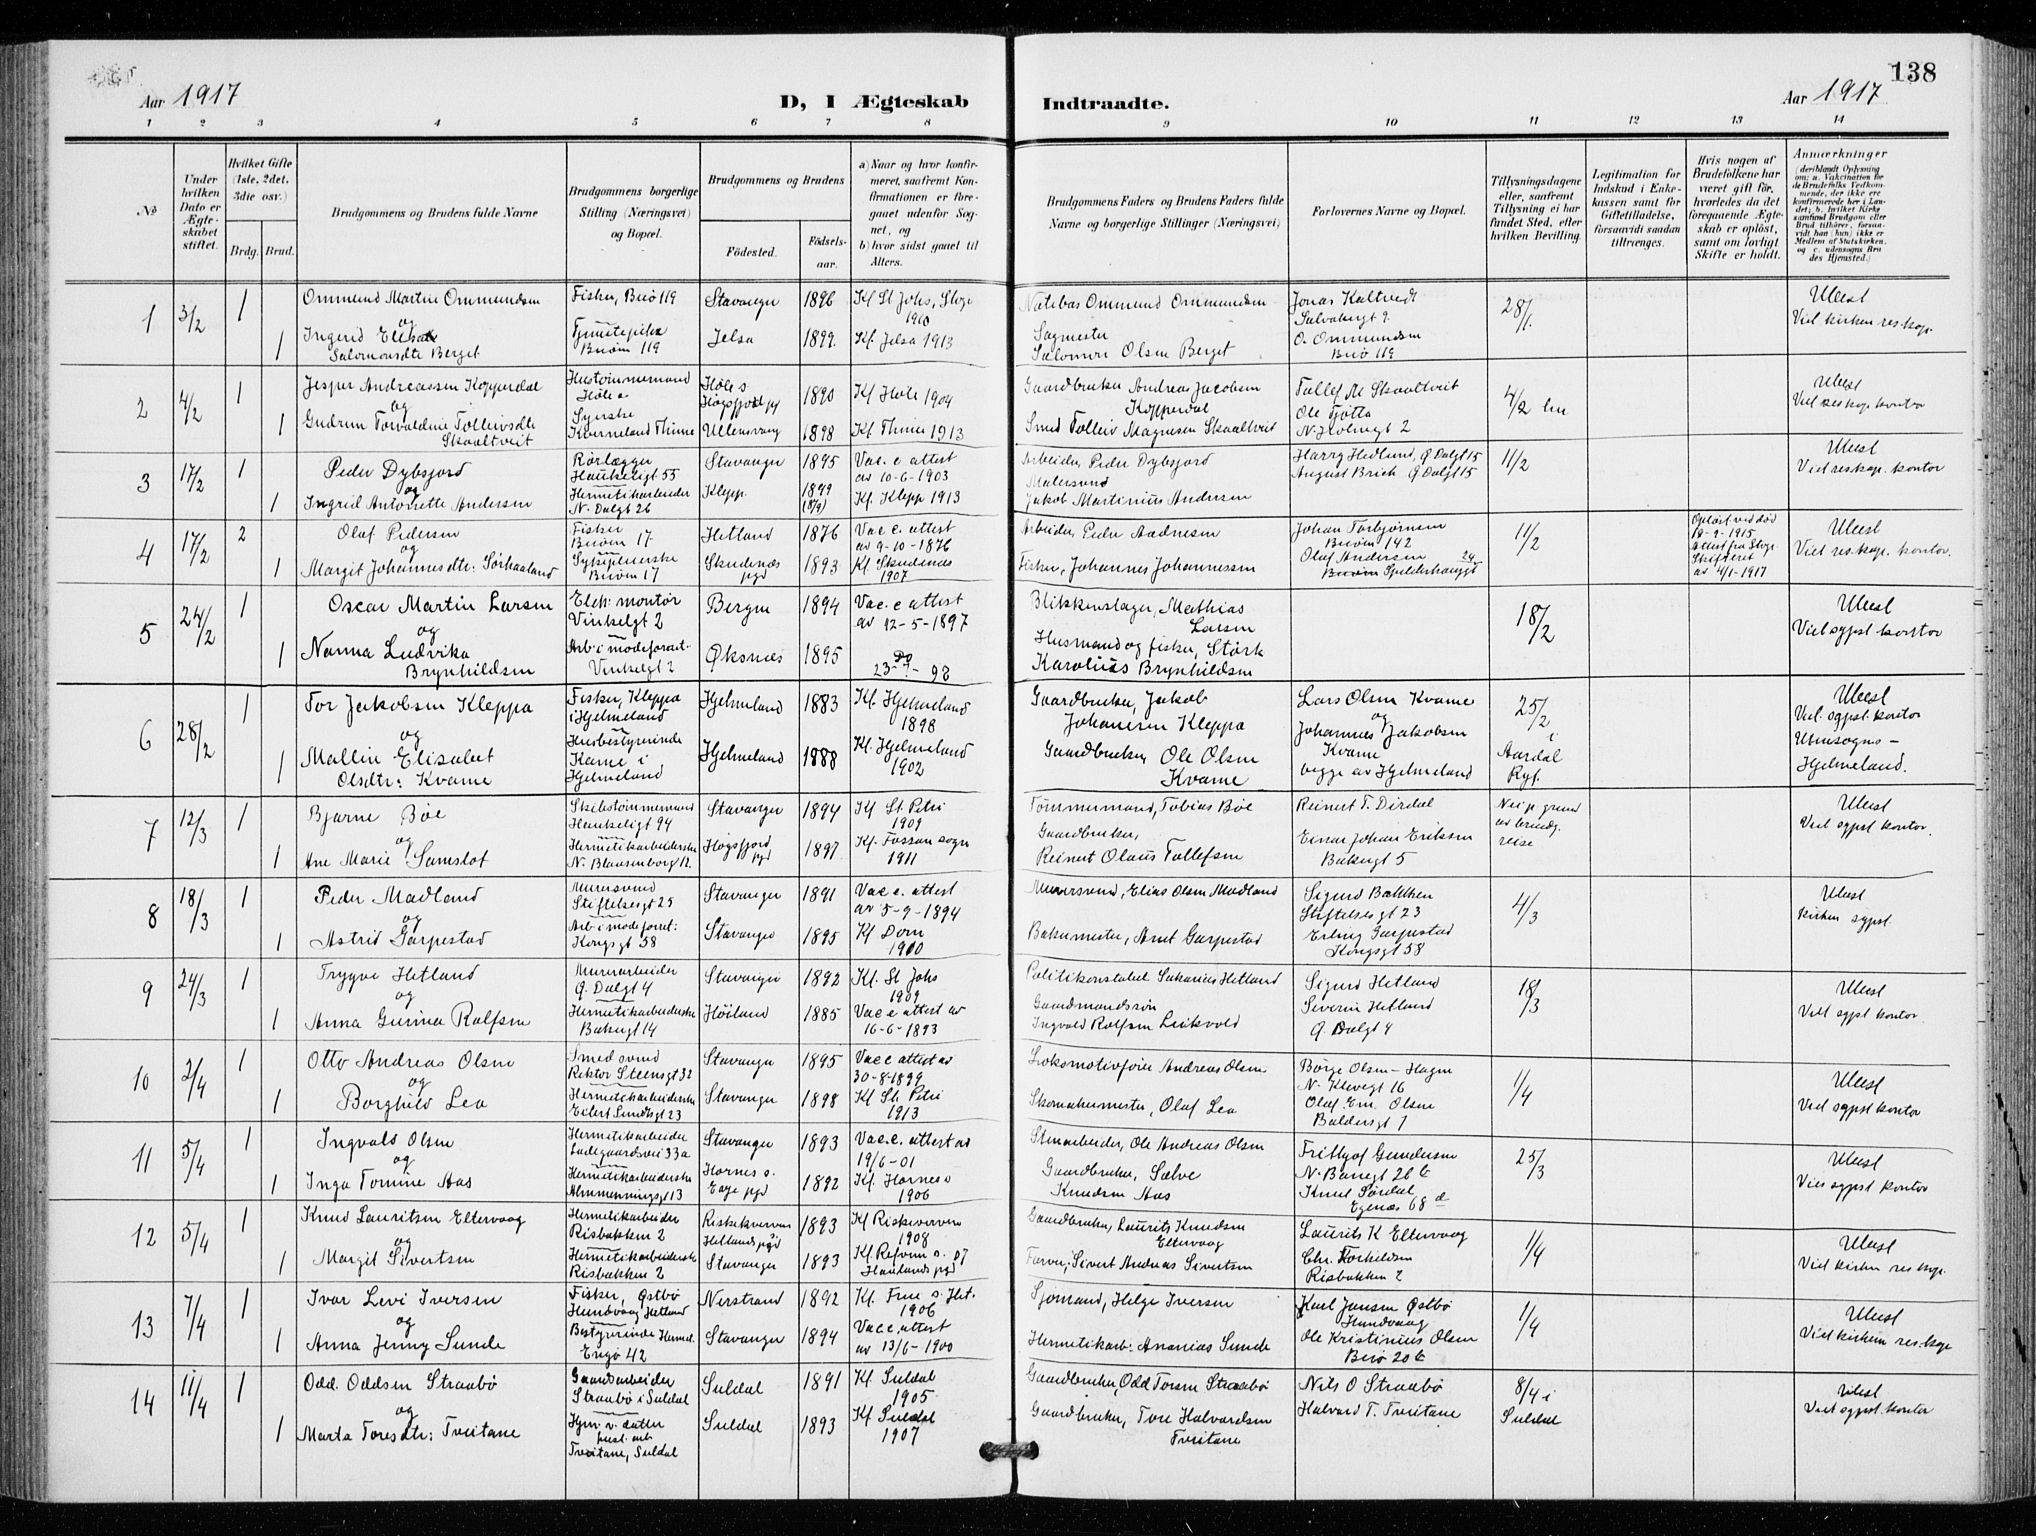 138
Aar 1917
D, I Ægteskab Indtraadte.
Aar 1917
1 2 3 4 5 6 7 8 9 10 11 12 13 14
№
Under hvilken Dato er Ægteskabet stiftet.
Hvilket Gifte (1ste, 2det, 3die osv.)
Brdg. Brud.
Brudgommens og Brudens fulde Navne
Brudgommens borgerlige Stilling (Næringsvei) og Bopæl.
Brudgommens og Brudens
Födested.
Födselsaar.
a) Naar og hvor konfirmeret, saafremt Konfirmationen er foregaaet udenfor Sognet, og
b) hvor sidst gaaet til Alters.
Brudgommens Faders og Brudens Faders fulde Navne og borgerlige Stillinger (Næringsvei)
Forlovernes Navne og Bopæl.
Tillysningsdagene eller, saafremt Tillysning ei har fundet Sted, efter hvilken Bevilling.
Legitimation for Indskud i Enkekassen samt for Giftetilladelse, forsaavidt saadan tiltrænges.
Hvis nogen af Brudefolkene har været gift för, hvorledes da det foregaaende Ægteskab er oplöst, samt om lovligt Skifte er holdt.
Anmærkninger
1 3/2 1 Ommund Martin Ommundsen Fisker, Buö 119 Stavanger 1896 Kf St Johs, Stvgr 1910 Ommund Ommundsen Jonas Kaltvedt 28/1. Ulæst
og
1 Ingerid Elisa Salomonsdtr Berget Buöin 119 Jelsa 1899 Kf. Jelsa 1913 Sagmester Salomon Olsen Berget O. Ommundsen Buö 119 Viet kirken res.kap.
2 4/2 1 Jesper Andreassen Kopperdal Hustömmermand Höle s. Högsfjord pgd 1890 Kf Höle 1904 Gaardbruker Andreas Jacobsen Kopperdal Tollef M Skaaltveit 4/2 Ulæst
og
1 Gudrun Torvaldine Tolleivsdtr Skaaltveit Syerske Kverneland Thime Ullensvang 1898 Kf. Thime 1913 Smed Tolleiv Magnesen Skaaltveit Ole Tjötta N. Holmegt 2 Viet res.kap. kontor
3 17/2 1 Peder Dybsjord Rörlægger Haukeligt 55 Stavanger 1895 Vac. e attest av 10-6-1903 Arbeider, Peder Dybsjord Harry Hedlund, Ö Dalgt 15 11/2 Ulæst
og
1 Ingrid Antonette Andersen Hermetikarbeider N. Dalgt 26 Klepp. 1899 Kf. Klepp 1913 Malersvend Jakob Martinius Andersen August Brich Ö Dalgt 15 Viet res.kap. kontor
4 17/2 2 Olaf Pedersen Fisker Buöin 17 Hetland 1876 Vac e. attest av 9-10-1876 Arbeider, Peder Aadnesen Johan Torbjörnsen Buöin 142 11/2 Oplöst ved död 18-9-1915 Attest fra Stvgr Skifteret av 4/1-1917 Ulæst
og
1 Margit Johannesdtr: Sörhaaland Buöin 17 Skudenæs pgd 1893 Kf Skudenæs 1907 Fisker, Johannes Johannessen Olaf Andersen Spilderhauggt 24 Viet res.kap. kontor.
5 24/2 1 Oscar Martin Larsen Elek. montör Vinkelgt 2 Bergen 1894 Vac. e attest av 12-5-1897 Blikkenslager, Mathias Larsen 18/2 Ulæst
og
1 Nanna Ludvika Brynhildsen Arb. i modeforret. Vinkelgt 2 Öksnes 1895 Do 23-7-98 Husmand og fisker, Störk Karolius Brynhildsen Viet sgpst kontor
6 28/2 1 Tor Jakobsen Kleppa Fisker, Kleppa i Hjelmeland Hjelmeland 1883 Kf. Hjelmeland 1898 Gaardbruker, Jakob Johannesen Kleppa Lars Olsen Kvame 25/2 i Aardal Ryf. Ulæst
og
1 Mallin Elisabet Olsdtr: Kvame Husbestyrerinde Kvame i Hjelmeland Hjelmeland 1888 Kf. Hjelmeland 1902 Gaardbruker Ole Olsen Kvame Johannes Jakobsen Kvame begge av Hjelmeland Viet. sgpst. kontor Utensogns- Hjelmeland.
7 12/3 1 Bjarne Böe Skibstömmermand Haukeligt 94 Stavanger 1894 Kf St. Petri 1909 Tömmermand, Tobias Böe Reinert T. Dirdal Nei p. grund av brudg. reise Ulæst
og
1 Ane Marie Samslot Hermetikarbeiderske N. Blaasenborg 12. Högsfjord pgd 1897 Kf. Fossan sogn 1911 Gaardbruker, Reinert Olaus Tollefsen Einar Johan Eriksen Bakergt 5 Viet sgpst kontor.
8 18/3 1 Peder Madland Murersvend Stiftelsesgt 25 Stavanger 1891 Vac e. attest av 5-9-1894 Murersvend, Elias Olsen Madland Sigurd Bakken Stiftelsesgt 23 4/3 Ulæst
og
1 Astrid Garpestad Arb i modeforret: Kongsgt 58 Stavanger 1895 Kf Dom 1910 Bakermester, Arnt Garpestad Erling Garpestad Kongsgt 58 kirken sgpst
9 24/3 1 Trygve Hetland Murarbeider Ö. Dalgt 4 Stavanger 1892 Kf. St Johs 1909 Politikonstabel Sakarias Hetland Sigurd Hetland 18/3 Ulæst
og
1 Anna Gurina Rolfsen Hermetikarbeiderske Bakergt 14 Höiland 1885 Vac e attest av 16-6-1893 Gaardmandssön Ingvald Rolfsen Leikvold Severin Hetland Ö Dalgt 4 Viet sgpst kontor.
10 2/4 1 Otto Andreas Olsen Smedsvend Rektor Steensgt 32 Stavanger 1895 Vac e attest av 30-8-1899 Lokomotivförer Andreas Olsen Börge Olsen-Hagen N. Klevegt 16 1/4 Ulæst
og
1 Borghild Lea Hermetikarbeiderske Eilert Sundtsgt 23 Stavanger 1898 Kf St. Petri 1913 Skomakermester, Olaf Lea Olaf Em. Olsen Baldersgt 7 Viet sgpst kontor
11 5/4 1 Ingvald Olsen Hermetikarbeider Ladegaardsvei 33a Stavanger 1893 Vac. e. attest av 19/6-01 Stenarbeider, Ole Andreas Olsen Fritjof Gundersen N. Banegt 26 b 25/3 Ulæst
og
1 Inga Tomine Aas Hermetikarbeiderske Almenningsgt 13 Hornes s. Evje pgd 1892 Kf. Hornes s 1906 Gaardbruker, Salve Knudsen Aas Knut Sördal Egenæs 68 Viet sgpst kontor
12 5/4 1 Knud Lauritsen Eltervaag Hermetikarbeider Risbakken 2 Riskekverven Hetlands pgd 1893 Kf Riskekverven 1908 Gaardbruker, Laurits Knudsen Eltervaag Laurits K Eltervaag 1/4 Ulæst
og
1 Margit Sivertsen Hermetikarbeiderske Risbakken 2 Stavanger 1893 Kf. s. pgd Farver, Sivert Andreas Sivertsen Chr. Torkildsen Risbakken 2 Viet kirken res kap.
13 7/4 1 Ivar Levi Iversen Fisker, Östbö Hundvaag, Hetland Nerstrand 1892 Kf. Frue s. Het. 1906 Sjömand, Helge Iversen Karl Jansen Östbö Hundvaag 1/4 Ulæst
og
1 Anna Jenny Sunde Bestyrerinde Hermet. Engö 42 Stavanger 1894 Vac e. attest av 13/6-1900 Hermetikarb: Ananias Sunde Ole Kristinius Olsen Buö 20 b Viet kirken res.kap
14 11/4 1 Odd. Oddsen Straabö Gaardsarbeider Straabö i Suldal Suldal 1891 Kf. Suldal 1905 Gaardbruker, Odd Torsen Straabö Nils O Straabö 8/4 i Suldal Ulæst
og
1 Marta Toresdtr: Tveitane Hjemv. datter Tveitane, Suldal Suldal 1893 Kf Suldal 1907 Gaardbruker, Tore Halvardsen Tveitane Halvard T. Tveitane Viet sgpst. kontor